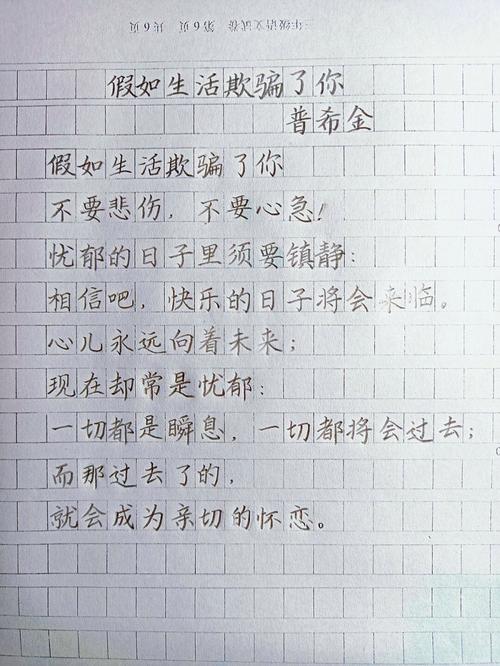 三年级语文试卷 第6页 共6页
假如生活欺骗了你
普希金
假如生活欺骗了你
不要悲伤，不要心急！
忧郁的日子里须要镇静：
相信吧，快乐的日子将会来临。
心儿永远向着未来；
现在却常是忧郁：
一切都是瞬息，一切都将会过去；
而那过去了的，
就会成为亲切的怀恋。